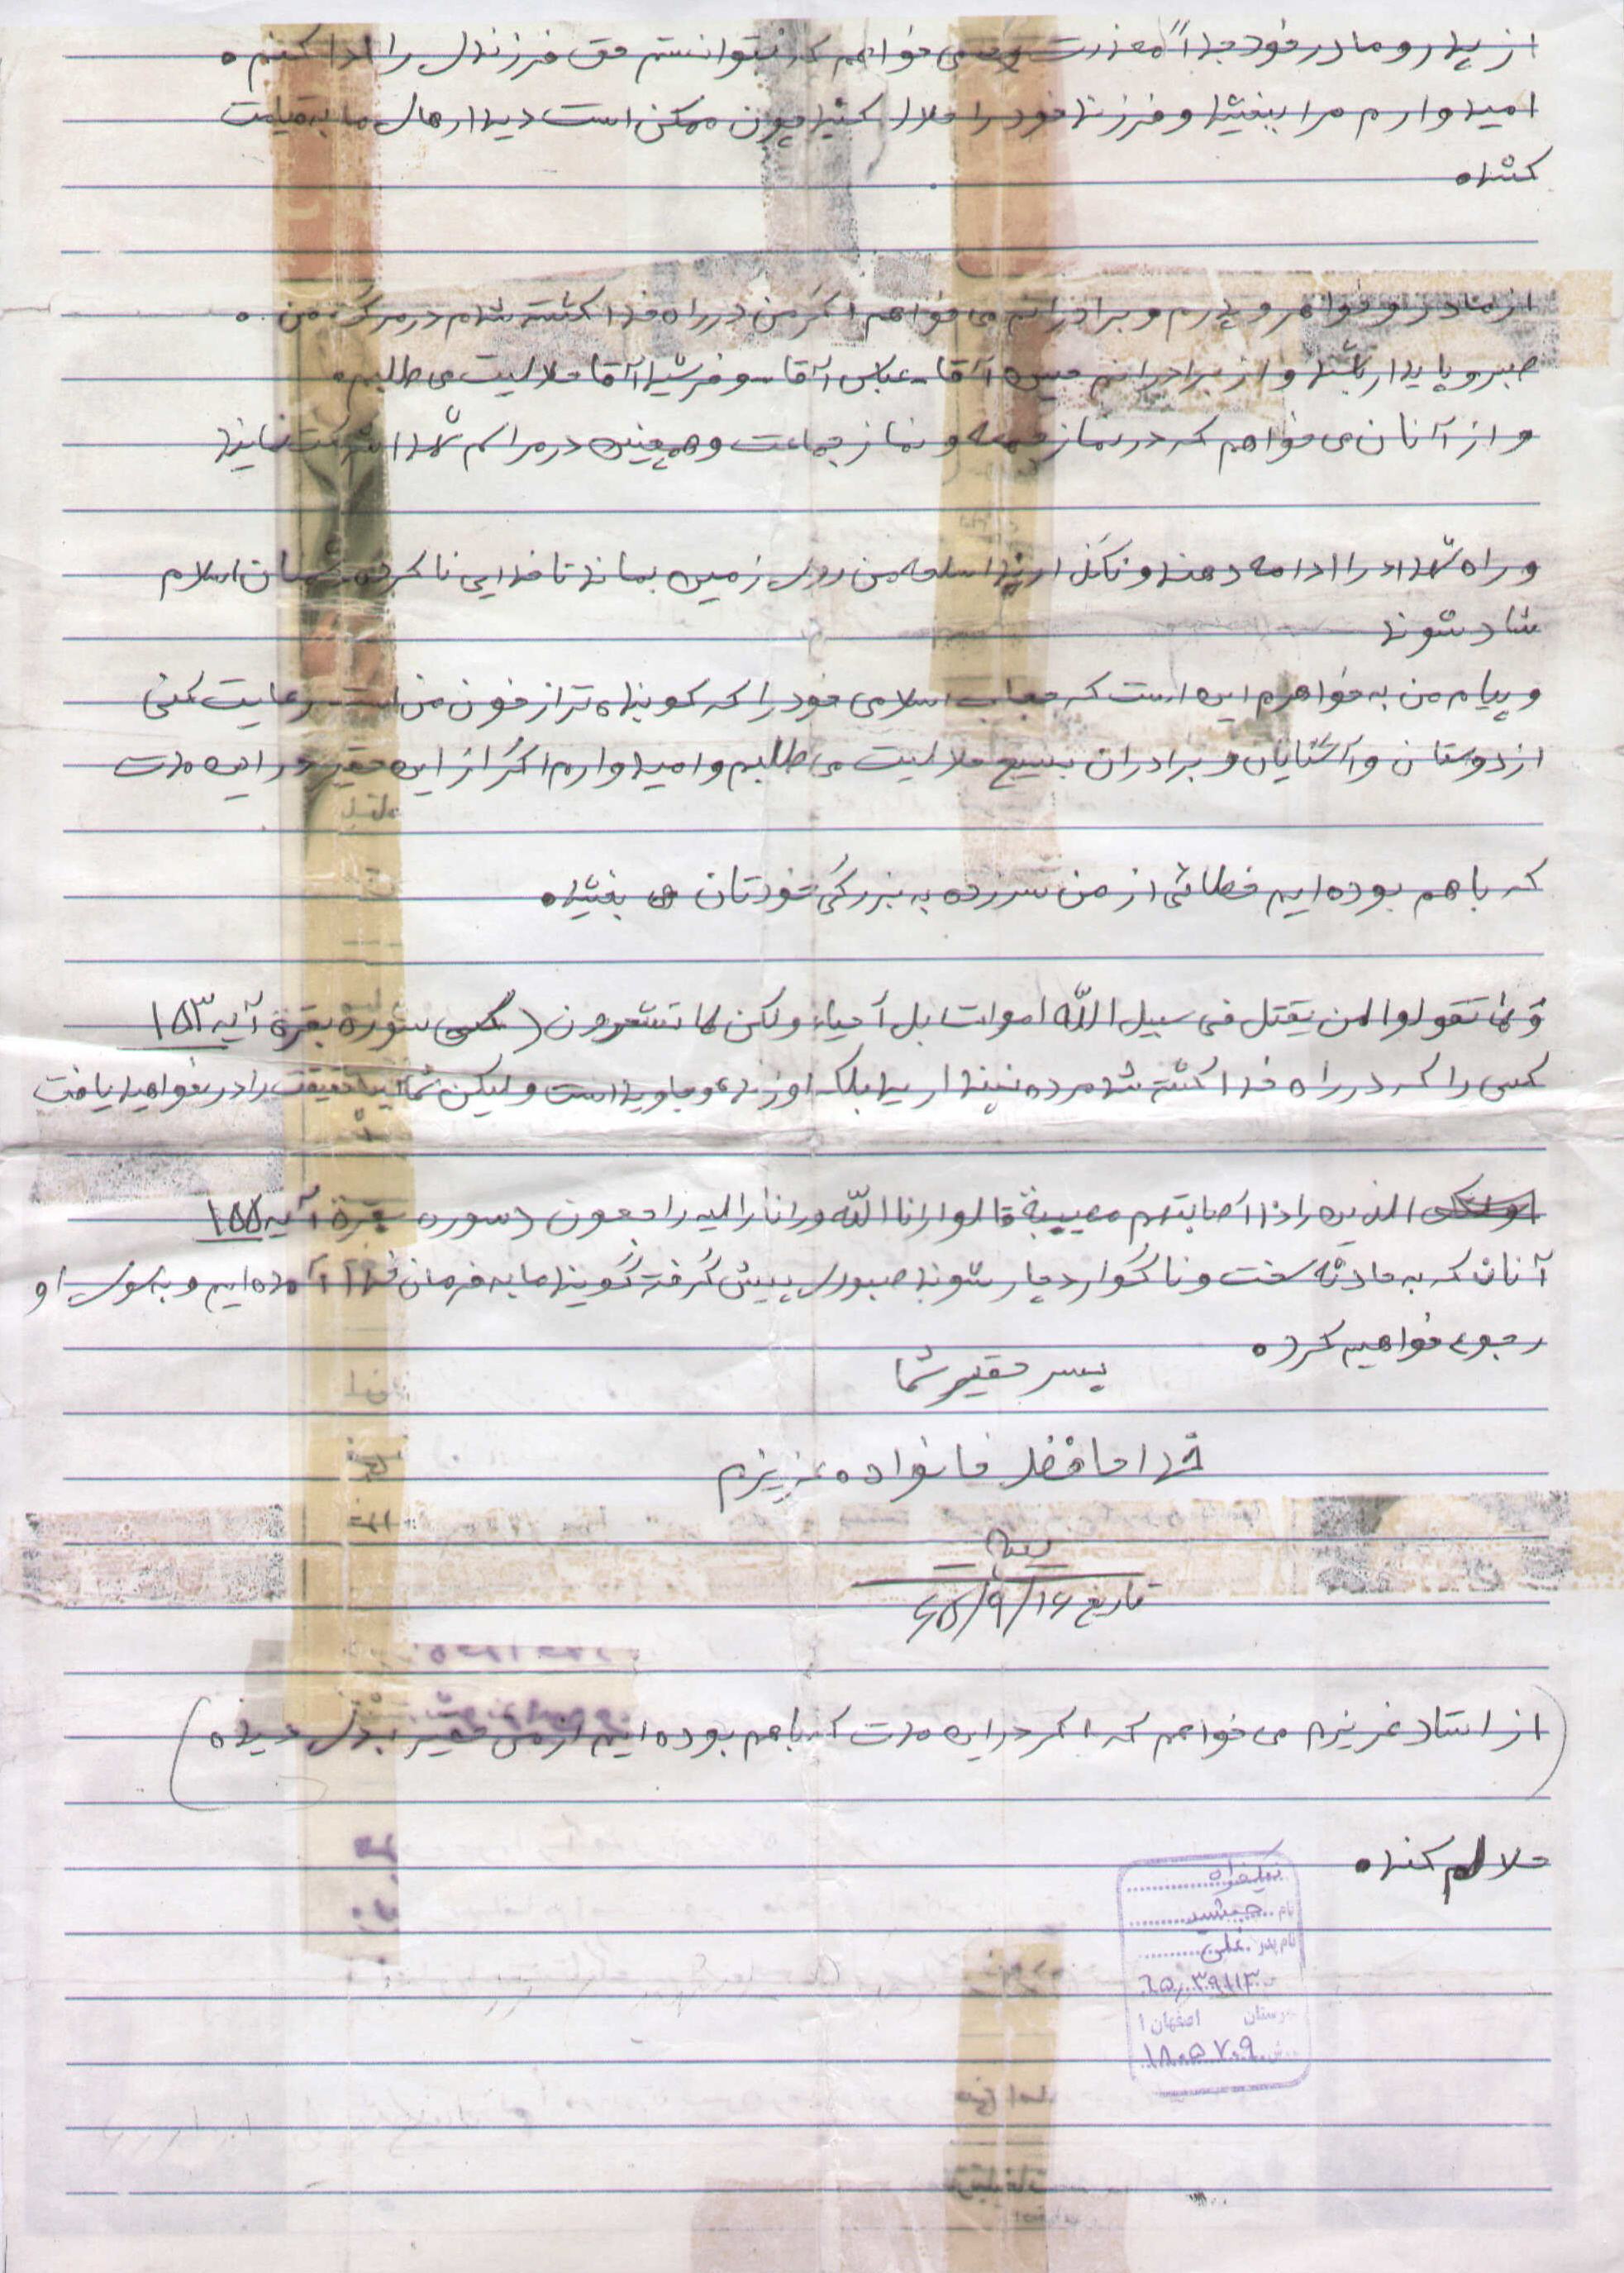 از پدر و مادر خود جداً معذرت می خواهم که نتوانستم حق فرزندی را ادا کنم ۰
امیدوارم مرا ببخشید و فرزند خود را حلال کنید چون ممکن است دیدارهای ما به قیامت
کشد۰
از مادر و خواهر و پدرم و برادرانم می خواهم اگر من در راه خدا کشته شدم در مرگ من ۰
صبر و پایدار باشند و از برادرانم حسین آقا - عباس آقا - و فرشید آقا حلالیت می طلبم۰
و از آنان می خواهم که در نماز جمعه و نماز جماعت و همچنین در مراسم شهدا شرکت نمایند
و راه شهدا را ادامه دهند و نگذارند اسلحه من روی زمین بماند تا خدایی ناکرده دشمنان اسلام
شاد شوند
و پیام من به خواهرم این است که حجاب اسلامی خود را که کوبنده تر از خون من است رعایت کنی
از دوستان و آشنایان و برادران بسیج حلالیت می طلبم و امیدوارم اگر از این حقیر در این مدت
که با هم بوده ایم خطائی از من سر زده به بزرگی خودتان می بخشید۰
و لا تقولوا لمن یقتل فی سبیل اللّه اموات بل أحیاء ولکن لا تشعرون ( سوره بقرة آیه ۱۵۳
کسی را که در راه خدا کشته شد مرده نپندارید بلکه او زنده و جاوید است ولیکن شما این حقیقت را در نخواهید یافت
الذین إذا أصابتهم مصیبة قالوا إنا اللّه و إنا إلیه راجعون (سوره بقرة آیه ۱۵۵
آنان که به حادثه سخت و ناگوار دچار شوند صبوری پیش گرفته گویند ما به فرمان خدا آمده ایم و به سوی او
رجوع خواهیم کرد۰
پسر حقیر شما
خدا حافظ خانواده عزیزم
تاریخ ۶۵/۹/۱۶
(از استاد عزیزم می خواهم که اگر در این مدت که با هم بوده ایم از من حقیر بدی دیده )
حلالم کند۰
نیکخواه
نام جمشید
نام پدر علی
۶۵٫۳۹۱۱۳
اصفهان ۱
۱۸۰۵۷۰۹